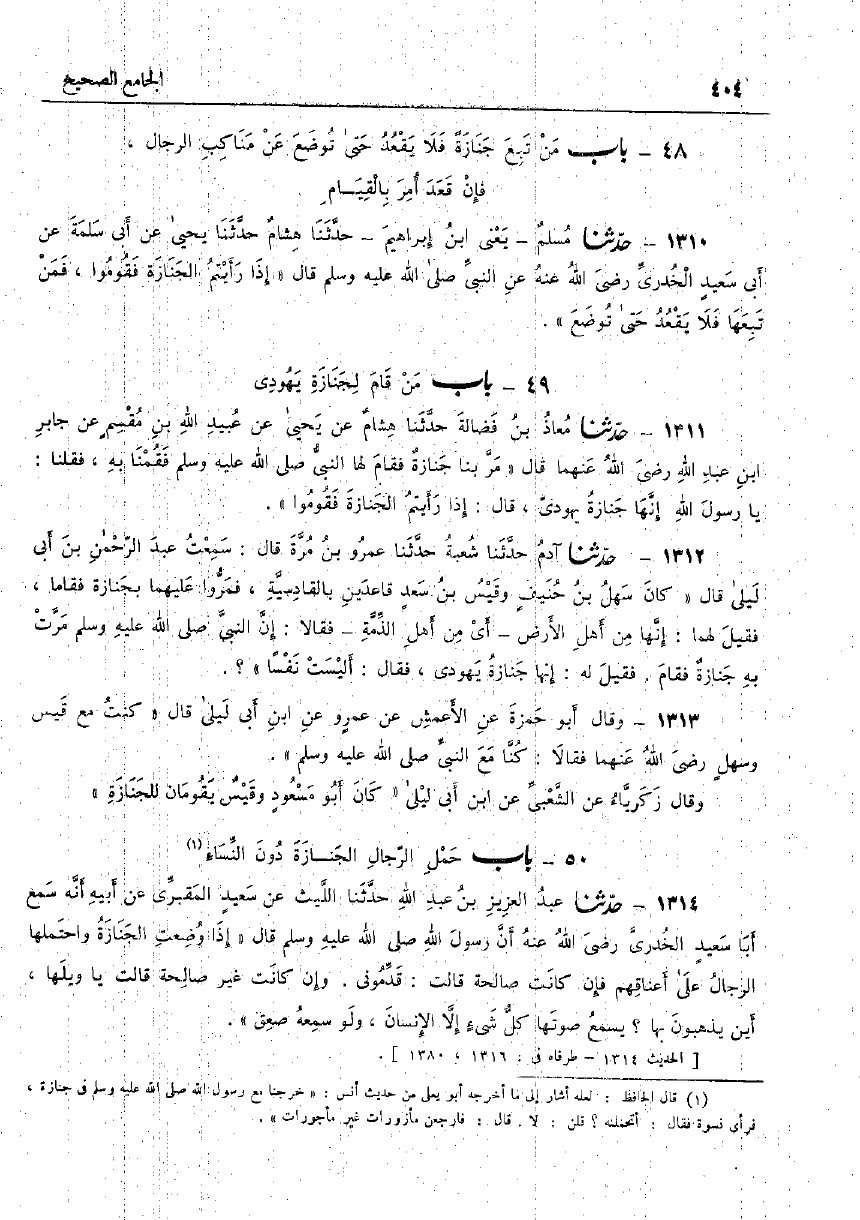 ٤٠٤ الجامع الصحيح
٤٨ – باب مَنْ تَبِعَ جَنَازَةً فَلَا يَقْعُدُ حَتىٰ تُوضَعَ عَنْ مَنَاكِبِ الرجال ،
فإِنْ قَعَدَ أُمِرَ بِالْقِيَـامِ
١٣١٠ – حدّثنا مُسلمٌ – يَعْنى ابنُ إبراهيمَ – حدَّثَنَا هِشامٌ حدَّثَنَا يحيىٰ عن أَبى سَلمَةَ عن
أَبى سَعيدٍ الْخُدرىِّ رضىَ اللهُ عنهُ عنِ النبىِّ صلىٰ الله عليه وسلم قال « إِذَا رَأَيْتُمُ الجَنَازَةَ فَقُومُوا ، فَمَنْ
تَبِعَهَا فَلَا يَقْعُدُ حَتىٰ تُوضَعَ » .
٤٩ – باب مَنْ قَامَ لِجَنَازَةِ يَهُودِى
١٣١١ – حدّثنا مُعاذُ بنُ فَضالةَ حدَّثَنا هِشامٌ عن يَحيىٰ عن عُبيدِ اللهِ بنِ مُقْسِمٍ عن جابرِ
ابنِ عبدِ اللهِ رضىَ اللهُ عَنهما قال « مَرَّ بنا جَنازةٌ فقامَ لها النبىُّ صلى الله عليه وسلم فَقُمْنَا بِهِ ، فقلنا :
يا رسولَ اللهِ إِنَّهَا جَنازةُ يهودىّ ، قال : إِذا رَأَيتمُ الجَنازةَ فَقُومُوا » .
١٣١٢ – حدّثنا آدمُ حدَّثَنا شُعبةُ حدَّثَنا عمرُو بنُ مُرَّةَ قال : سَمِعْتُ عبدَ الرَّحْمٰنِ بنَ أَبى
لَيلىٰ قال « كانَ سَهلُ بنُ حُنَيفٍ وقَيْسُ بنُ سَعدٍ قاعدَينِ بالقادِسيَّةِ ، فمَرُّوا عَليهما بجَنازة فقاما ،
فقيلَ لهما : إِنَّها مِن أَهلِ الأَرضِ – أَىْ مِن أَهلِ الذِّمَّةِ – فقالا : إِنَّ النبىَّ صلى اللهُ عليهِ وسلم مَرَّتْ
بهِ جَنازةٌ فقامَ . فقيلَ له : إِنها جَنازةُ يَهودى ، فقال : أَليْسَتْ نَفْسًا » ؟ .
١٣١٣ – وقال أَبو حَمزةَ عنِ الأَعمشِ عن عمرٍو عنِ ابنِ أَبى لَيلىٰ قال « كنتُ مع قَيس
وسهلٍ رضىَ اللهُ عَنهما فقالَا : كُنَّا مَعَ النبىِّ صلى الله عليه وسلم » .
وقال زَكريَّاءُ عن الشَّعْبىِّ عن ابن أَبى لَيْلىٰ « كَانَ أَبُو مَسْعُودٍ وقَيْسٌ يَقُومَان للجَنَازَةِ »
٥٠ – باب حَمْلِ الرِّجالِ الجَنـازَةَ دُونَ النِّسَاءِ (١)
١٣١٤ – حدّثنا عبدُ العزيزِ بنُ عبدِ اللهِ حدَّثَنا اللَّيث عن سَعيدٍ المَقبرىِّ عن أَبيهِ أَنَّه سَمع
أَبَا سَعيدٍ الخُدرىَّ رضىَ اللهُ عنهُ أَنَّ رَسولَ اللهِ صلى اللهُ عليهِ وسلم قال « إِذَا وُضِعتِ الجَنَازَةُ واحتَملها
الرجالُ علَىٰ أَعناقِهم فإِن كانَت صالحة قالت : قَدِّمُونى . وإِن كانَت غير صالِحة قالت يا ويلَها ،
أَين يذهبونَ بها ؟ يسمعُ صوتَها كلُّ شَىءٍ إِلَّا الإِنسانَ ، ولَو سمِعهُ صعِق » .
[ الحديث ١٣١٤ – طرفاه فى : ١٣١٦ ، ١٣٨٠ ] .
(١) قال الحافظ : لعله أشار إلى ما أخرجه أبو يعلى من حديث أنس : « خرجنا مع رسول الله صلى الله عليه وسلم فى جنازة ،
فرأى نسوة فقال : أتحملنه ؟ قلن : لا . قال : فارجعن مأزورات غير مأجورات » .